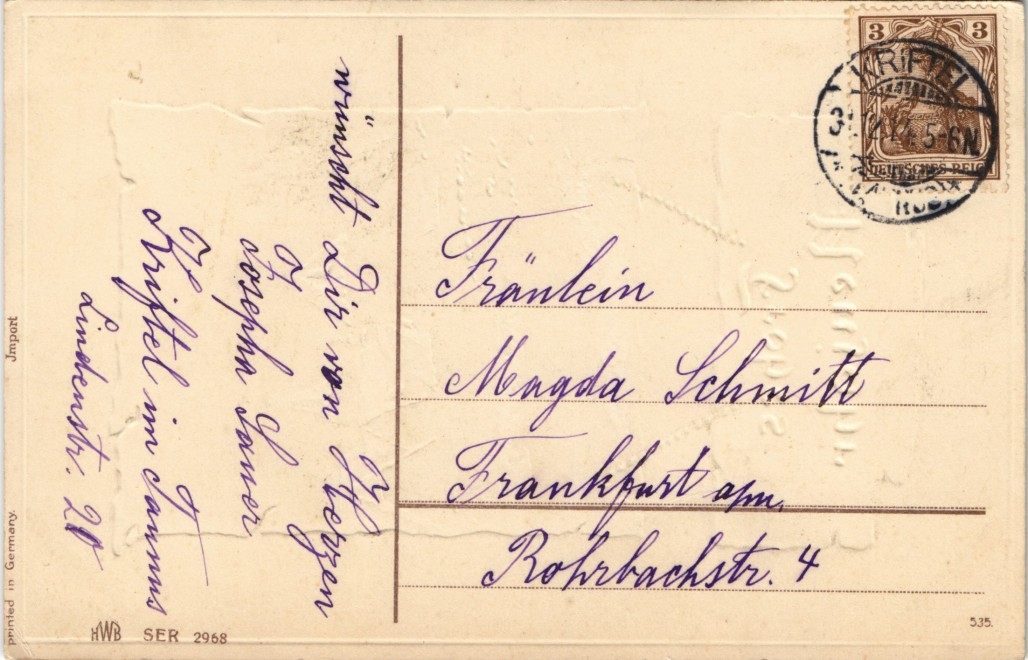 wünscht Dir von Herzen
Josepha Sauer
Kriftel im Taunus
Lindenstr. 20
Fräulein
Magda Schmitt
Frankfurt a/m.
Rohrbachstr. 4
3 3
DEUTSCHES REICH
KRIFTEL
5-6N
Jmport
printed in Germany.
HWB SER 2968
535.